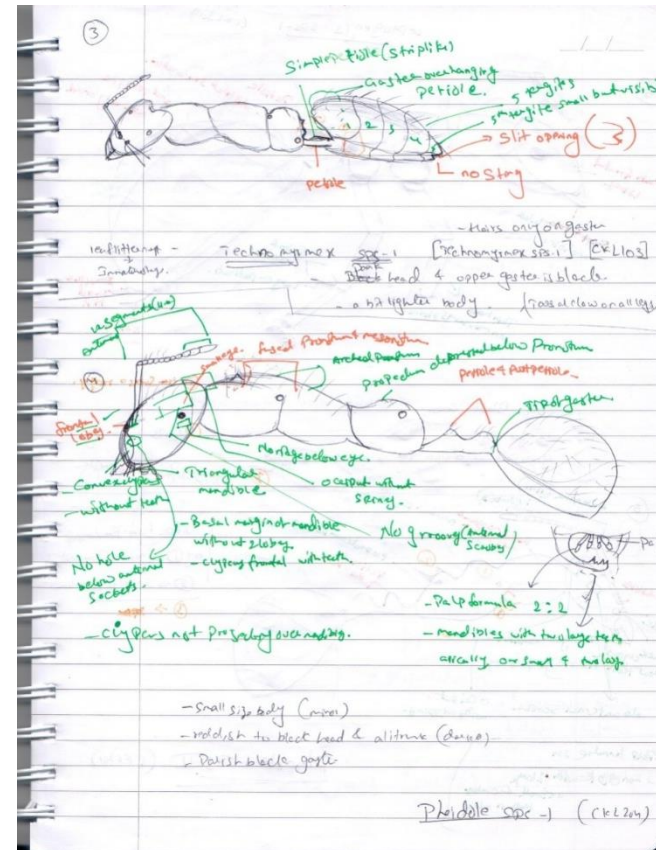 3
Simple petiole (striplike)
Gaster overhanging
petiole.
5 tergites
5th tergite small but visible
1 2 3 4 5
Slit opening (3)
no sting
petiole
- Hairs only on gaster
leaf litter
Technomyrmex spc-1 [Technomyrmex sps-1] [CKL103]
- Black head & upper gaster is black.
- a bit lighter body.
on all legs
segments
antennal
4
fused Pronotum & mesonotum
Arched Pronotum
propodeum depressed below Pronotum
petiole & postpetiole
Tip of gaster
frontal
lobes
No ridge below eye.
- Convex clypeus
- without teeth
Triangular
mandible
occiput without
- Basal margin of mandible
without 2 lobes.
- clypeus frontal with teeth.
No groove (antennal
Scrobe)
No hole
below antennal
sockets.
- Palp formula 2:2
- clypeus not projecting over mandible.
- mandibles with two large teeth
apically
- small size body (minor)
- reddish to black head & alitrunk
black gaster
Pheidole spc-1 (CKL204)